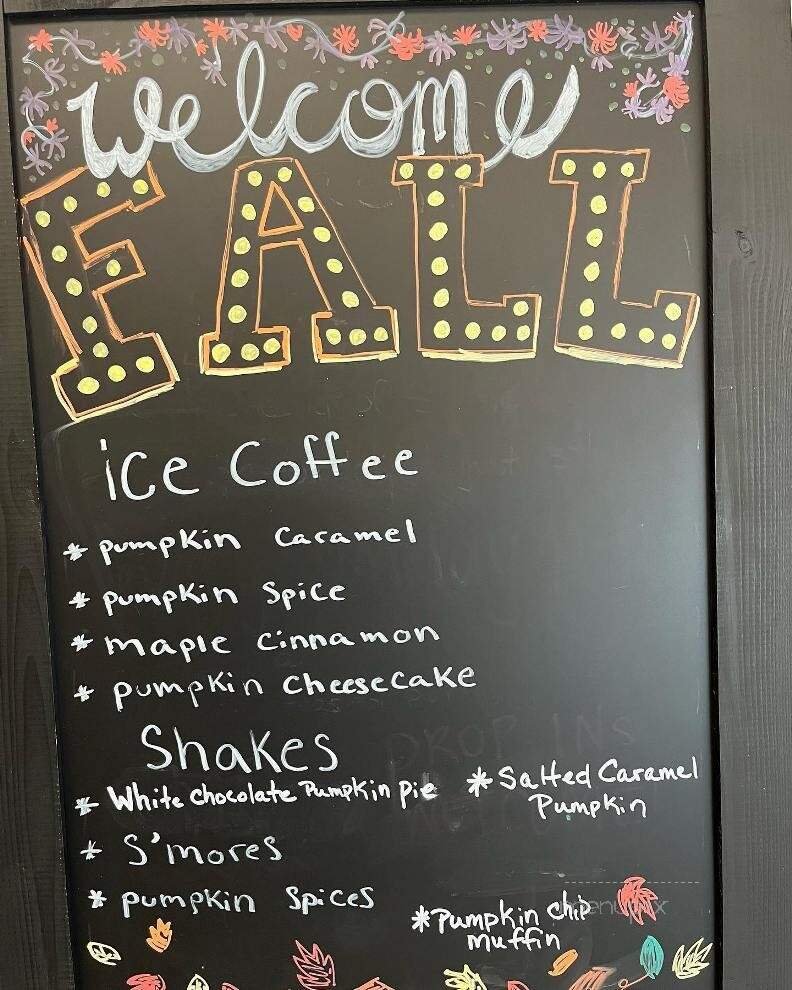 welcome
FALL
ice Coffee
* pumpkin Caramel
* pumpkin Spice
* maple Cinnamon
* pumpkin Cheesecake
Shakes
* White chocolate Pumpkin pie
* Salted Caramel
Pumpkin
* S'mores
* pumpkin Spices
* Pumpkin chip
muffin